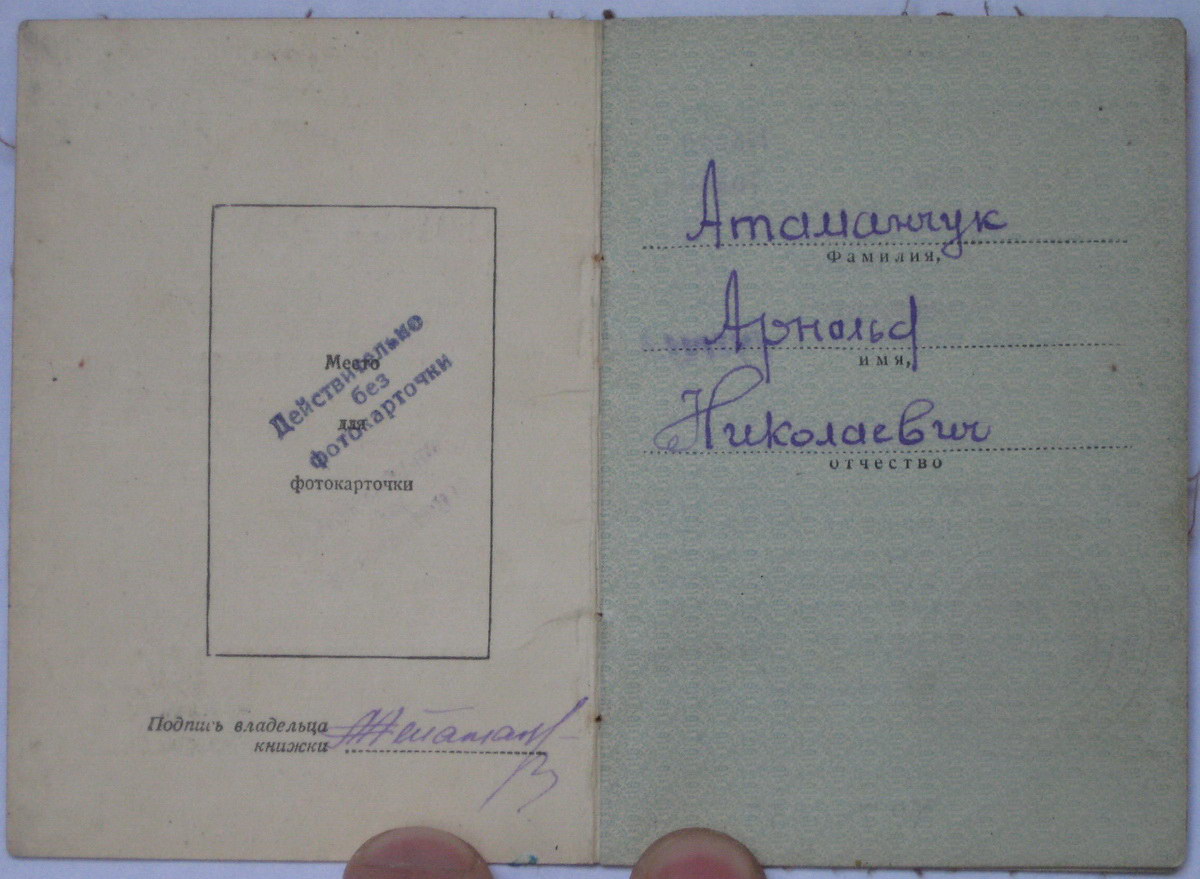 Место
для
фотокарточки
Действительно
без
фотокарточки
Подпись владельца
книжки
Атаманчук
Фамилия,
Арнольд
имя,
Николаевич
отчество